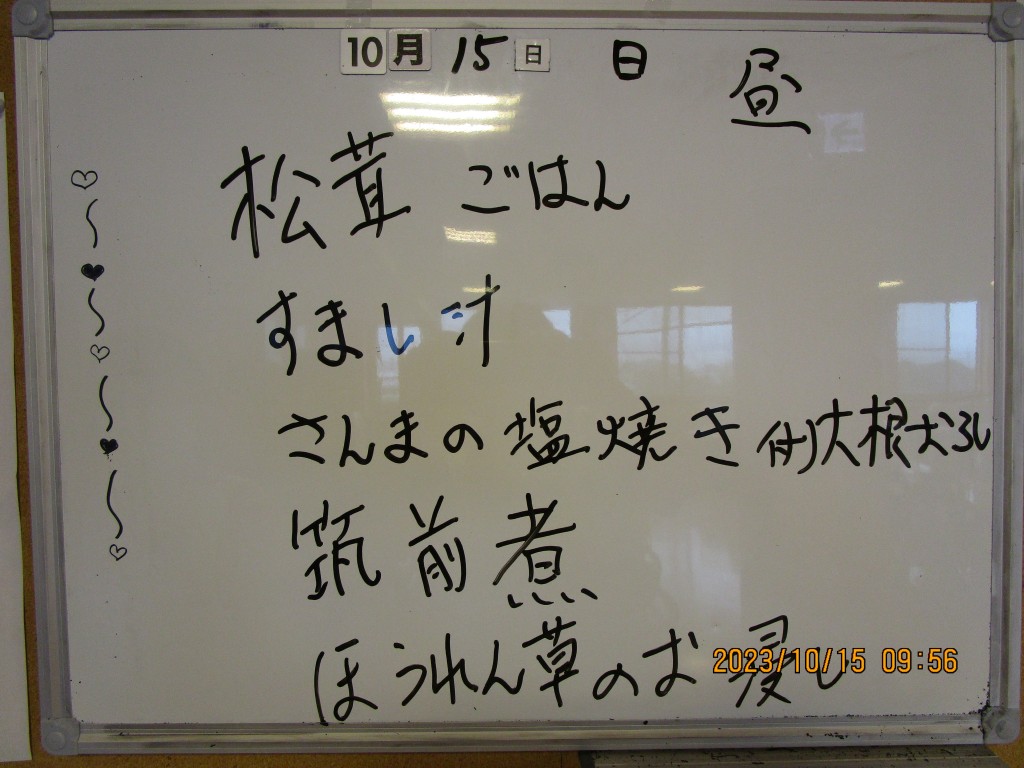 10月 15日 日 昼
松茸 ごはん
すまし汁
さんまの 塩焼き 付)大根おろし
筑前煮
ほうれん草のお浸し
2023/10/15 09:56